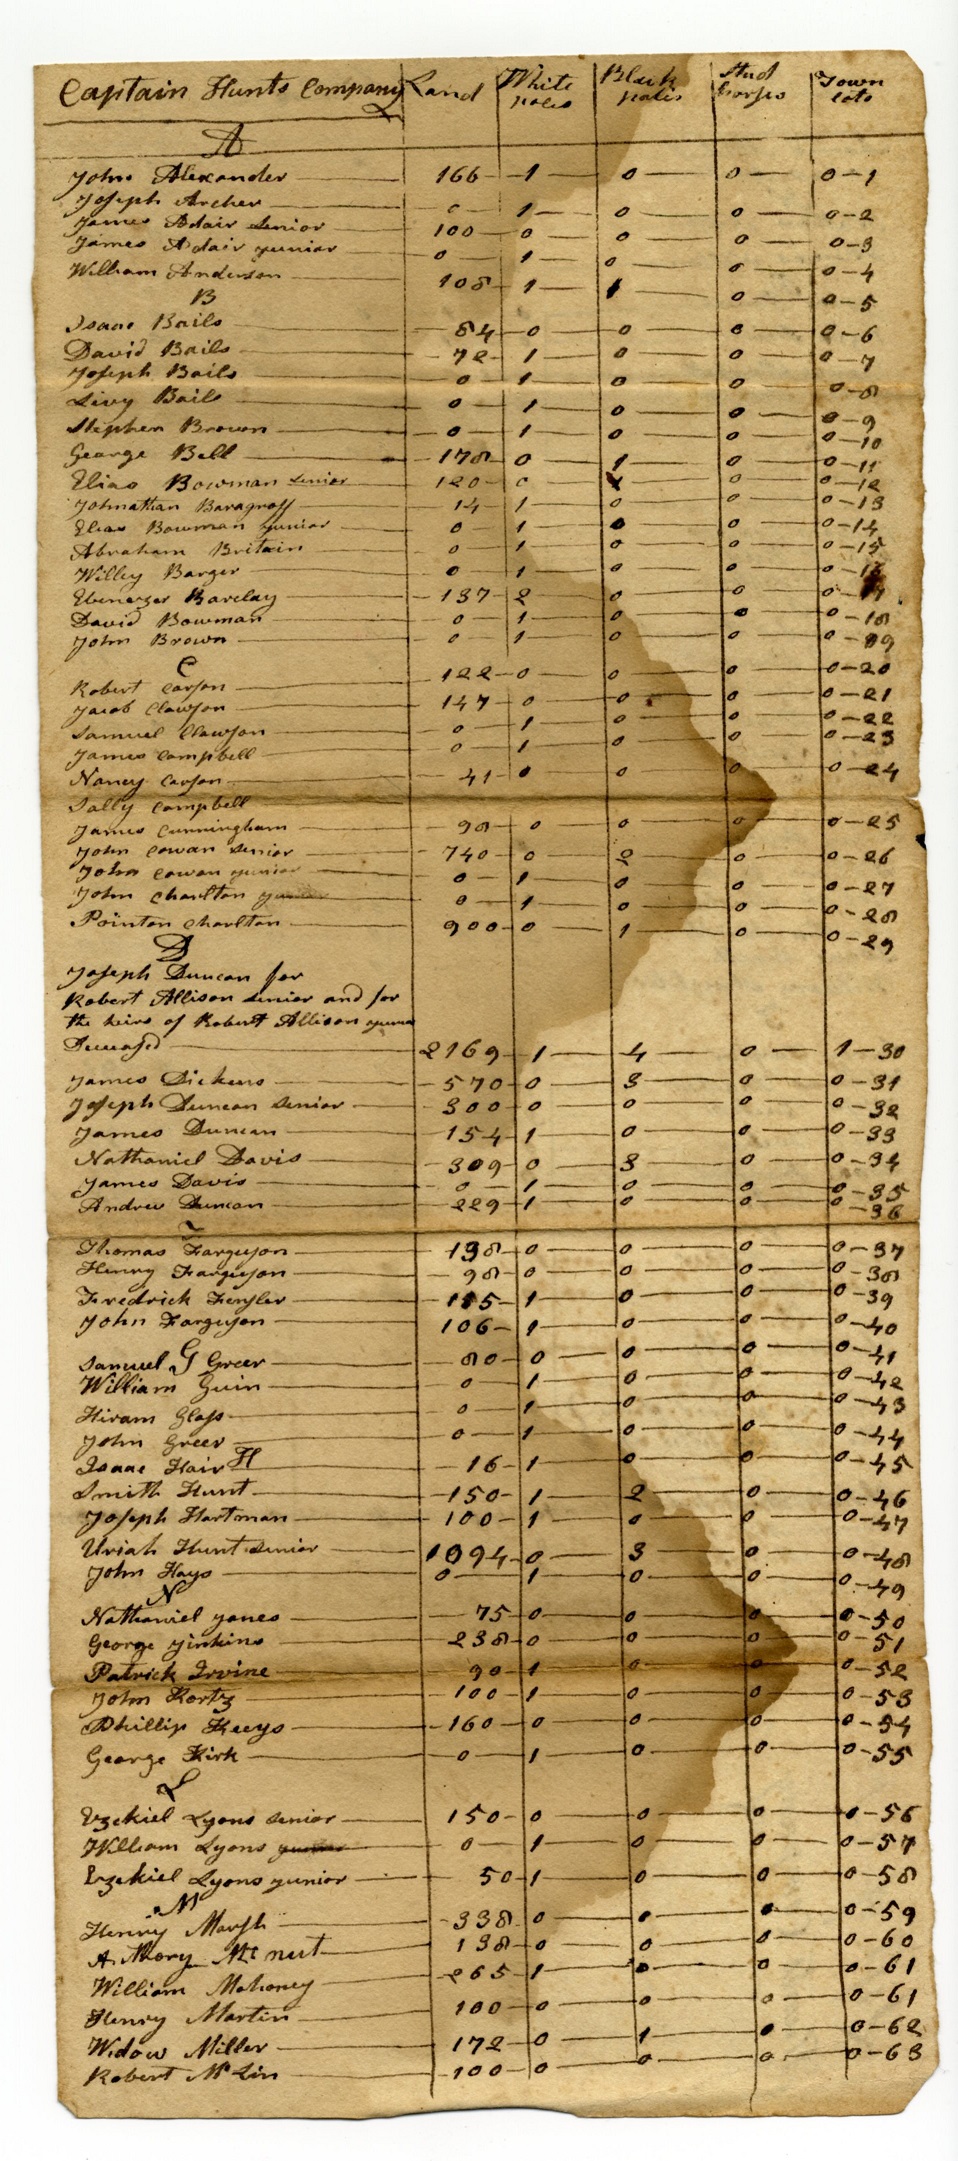 Captain Hunts Company Land White poles Black poles Stud horses Town lots
A
John Alexander 166 1 0 0 0-1
Joseph Archer 0 1 0 0 0-2
James Adair senior 100 0 0 0 0-3
James Adair yunior 0 1 0 0 0-4
William Anderson 108 1 1 0 0-5
B
Isaac Bails 84 0 0 0 0-6
David Bails 72 1 0 0 0-7
Joseph Bails 0 1 0 0 0-8
Livy Bails 0 1 0 0 0-9
Stephen Brown 0 1 0 0 0-10
George Bell 178 0 1 0 0-11
Elias Bowman senior 120 0 0 0-12
Johnathan Baragnoff 14 1 0 0 0-13
Elias Bowman yunior 0 1 0 0 0-14
Abraham Britain 0 1 0 0 0-15
Willey Barger 0 1 0 0 0-16
Ebenezer Barclay 137 2 0 0 0-17
David Bowman 0 1 0 0 0-18
John Brown 0 1 0 0 0-19
C
Robert Carson 122 0 0 0 0-20
Jacob Clawson 147 0 0 0 0-21
Samuel Clawson 0 1 0 0 0-22
James Campbell 0 1 0 0 0-23
Nancy Carson 41 0 0 0 0-24
Sally Campbell
James Cunningham 98 0 0 0 0-25
John Cowan senior 740 0 2 0 0-26
John Cowan yunior 0 1 0 0 0-27
John Charlton yunior 0 1 0 0 0-28
Pointon Charlton 900 0 1 0 0-29
D
Joseph Duncan for
Robert Allison senior and for
the heirs of Robert Allison yunior
Deceased 2169 1 4 0 1-30
James Dickens 570 0 3 0 0-31
Joseph Duncan senior 300 0 0 0 0-32
James Duncan 154 1 0 0 0-33
Nathaniel Davis 309 0 3 0 0-34
James Davis 0 1 0 0 0-35
Andrew Duncan 229 1 0 0 0-36
F
Thomas Farguson 138 0 0 0 0-37
Henry Farguson 98 0 0 0 0-38
Fredrick Fensler 115 1 0 0 0-39
John Farguson 106 1 0 0 0-40
G
Samuel Greer 80 0 0 0 0-41
William Guin 0 1 0 0 0-42
Hiram Glass 0 1 0 0 0-43
John Greer 0 1 0 0 0-44
H
Isaac Hair 16 1 0 0 0-45
Smith Hunt 150 1 2 0 0-46
Joseph Hartman 100 1 0 0 0-47
Uriah Hunt senior 1094 0 3 0 0-48
John Hays 0 1 0 0 0-49
N
Nathaniel yones 75 0 0 0 0-50
George yinkins 238 0 0 0 0-51
Patrick Irvine 90 1 0 0 0-52
John Kortz 100 1 0 0 0-53
Phillip Keeys 160 0 0 0 0-54
George Kirk 0 1 0 0 0-55
L
Ezekiel Lyons senior 150 0 0 0 0-56
William Lyons yunior 0 1 0 0 0-57
Ezekiel Lyons yunior 50 1 0 0 0-58
M
Henry Marsh 338 0 0 0 0-59
Anthony Mc nut 138 0 0 0 0-60
William Mahoney 265 1 0 0 0-61
Henry Martin 100 0 0 0 0-61
Widow Miller 172 0 1 0 0-62
Robert Mc Lin 100 0 0 0 0-63